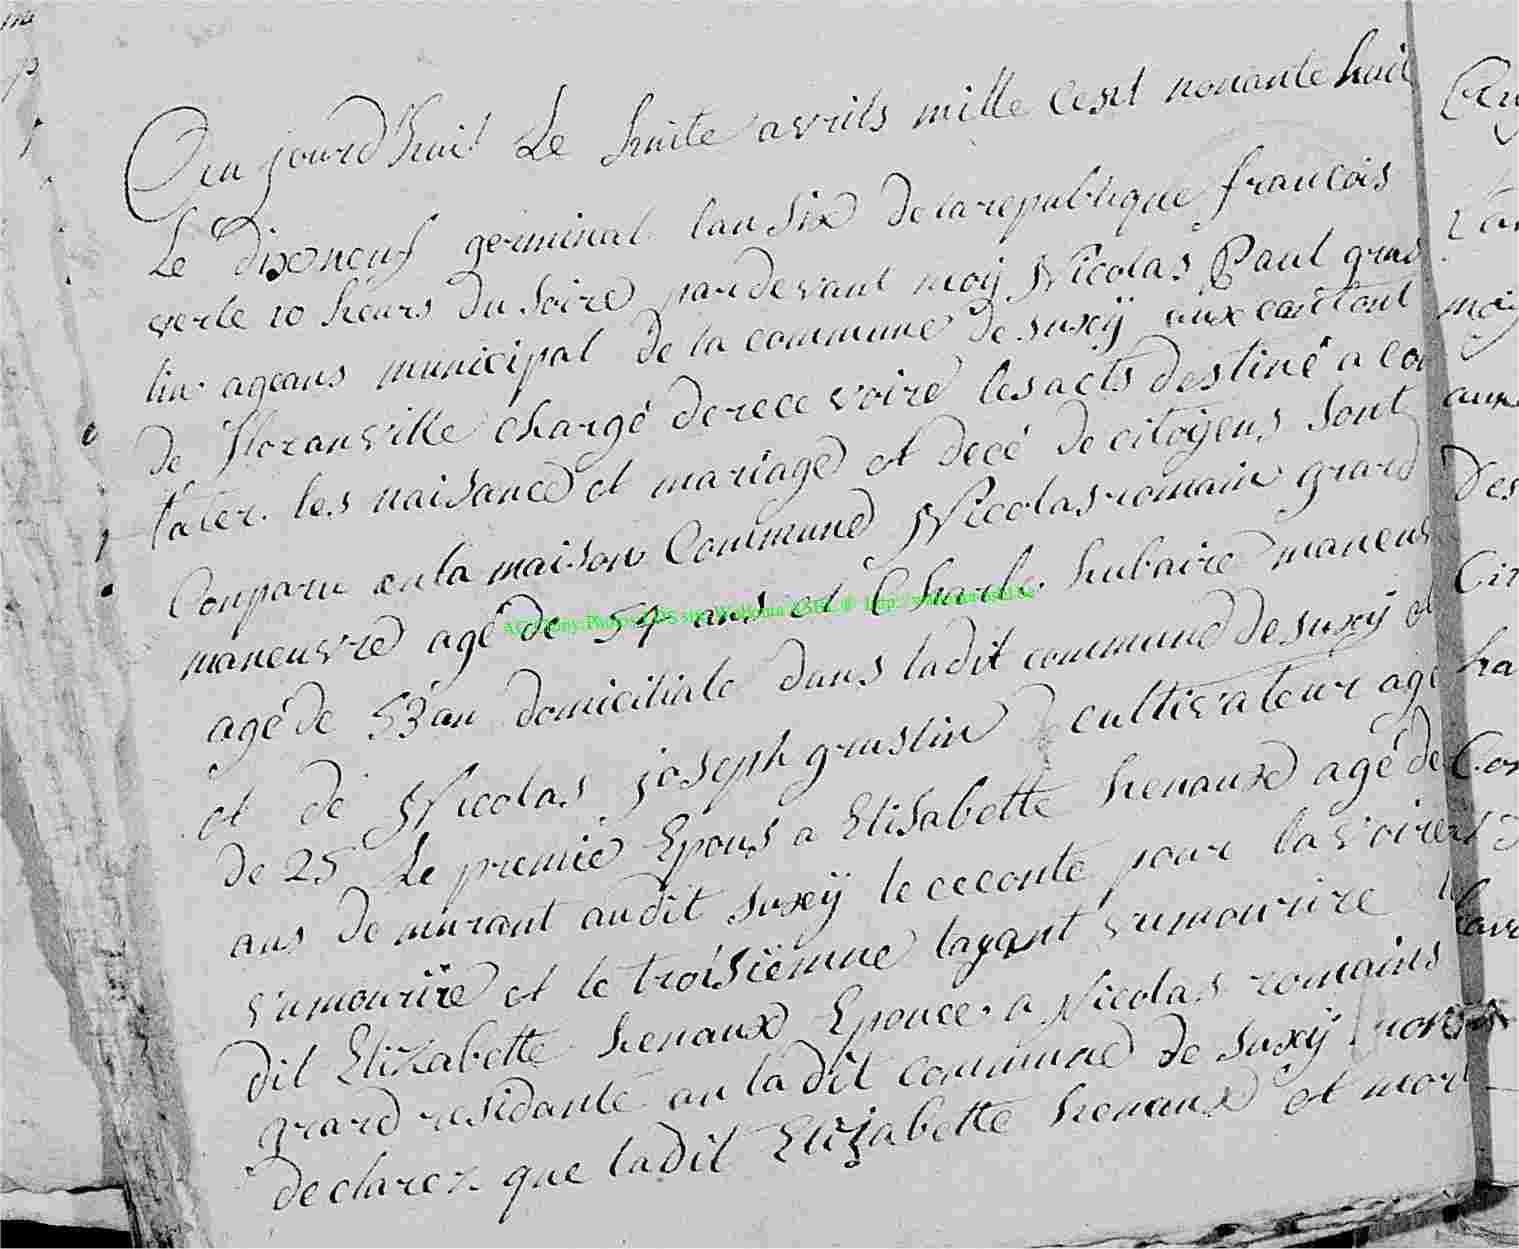 Cen jourd'huit Le huite avrils mille cest nonante huit
Le dixneuf germinal lan six de la republique francois
verle 10 heurs du soire pardevant moÿ Nicolas Paul grus
lin ageans municipal de la commune de suxÿ aux cantont
de floranville chargé de rece voire les acts destiné a con
tater les naisance et mariage et decé de citoÿens sont
Conparu en la maison Commune Nicolas romain grard
maneuvre agé de 54 ans et Charle hubaire maneuv
agé de 53 an domiciliale dans ladit commune de suxÿ et
et de Nicolas joseph gruslin cultivateur agé
de 25 Le premié Epous a Elisabette henaux agé de
ans demurant audit suxÿ le ceconte pour lavoire
vumourire et le troisiemme layant vumourire
dit Elizabette henaux Epouce a Nicolas romains
grard residante an ladit commune de suxÿ
declarez que ladit Elizabette henaux et mor